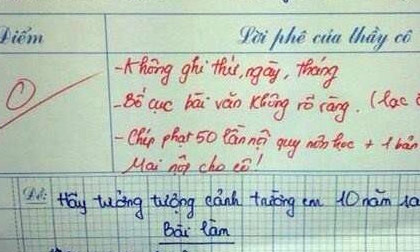 Điểm
Lời phê của thầy cô
0
-Không ghi thứ, ngày, tháng
-Bố cục bài văn không rõ ràng. (lạc
-Chép phạt 50 lần nội quy môn học + 1 bản
Mai nộp cho cô!
Đề: Hãy tưởng tượng cảnh trường em 10 năm
Bài làm